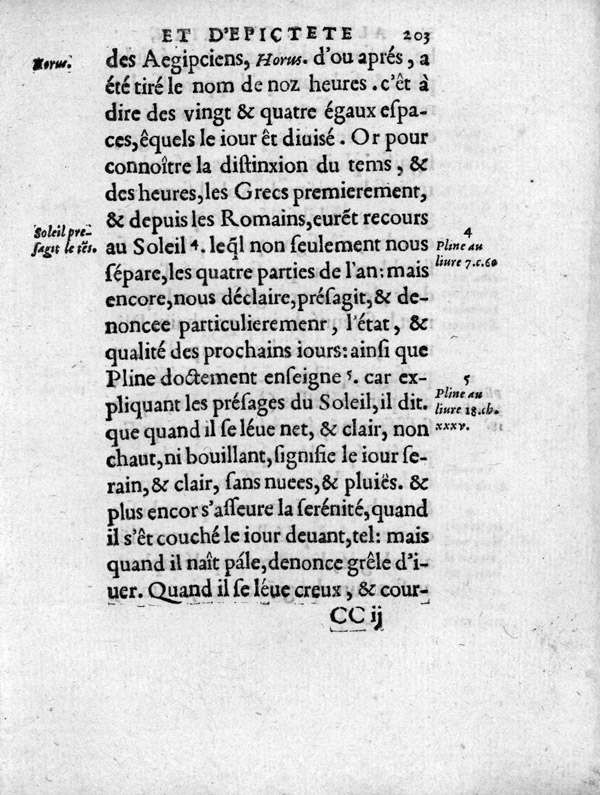 ET D'EPICTETE 203
Horus.
des Aegipciens, Horus. d'ou aprés, a
été tiré le nom de noz heures. c'êt à
dire des vingt & quatre égaux eſpa-
ces, êquels le iour êt diuisé. Or pour
connoître la diſtinxion du tems, &
des heures, les Grecs premierement,
& depuis les Romains, eurẽt recours
Soleil pre-
ſagit le tẽs.
au Soleil 4. leq̃l non ſeulement nous
4
Pline au
liure 7.c.60
ſépare, les quatre parties de l'an: mais
encore, nous déclaire, préſagit, & de-
noncee particulieremenr, l'état, &
qualité des prochains iours: ainſi que
Pline doctement enſeigne 5. car ex-
5
Pline au
liure 18.ch.
xxxv.
pliquant les préſages du Soleil, il dit.
que quand il ſe léue net, & clair, non
chaut, ni bouillant, ſignifie le iour ſe-
rain, & clair, ſans nuees, & pluiës. &
plus encor s'aſſeure la ſerénité, quand
il s'êt couché le iour deuant, tel: mais
quand il naît pále, denonce grêle d'i-
uer. Quand il ſe léue creux, & cour-
CC ij